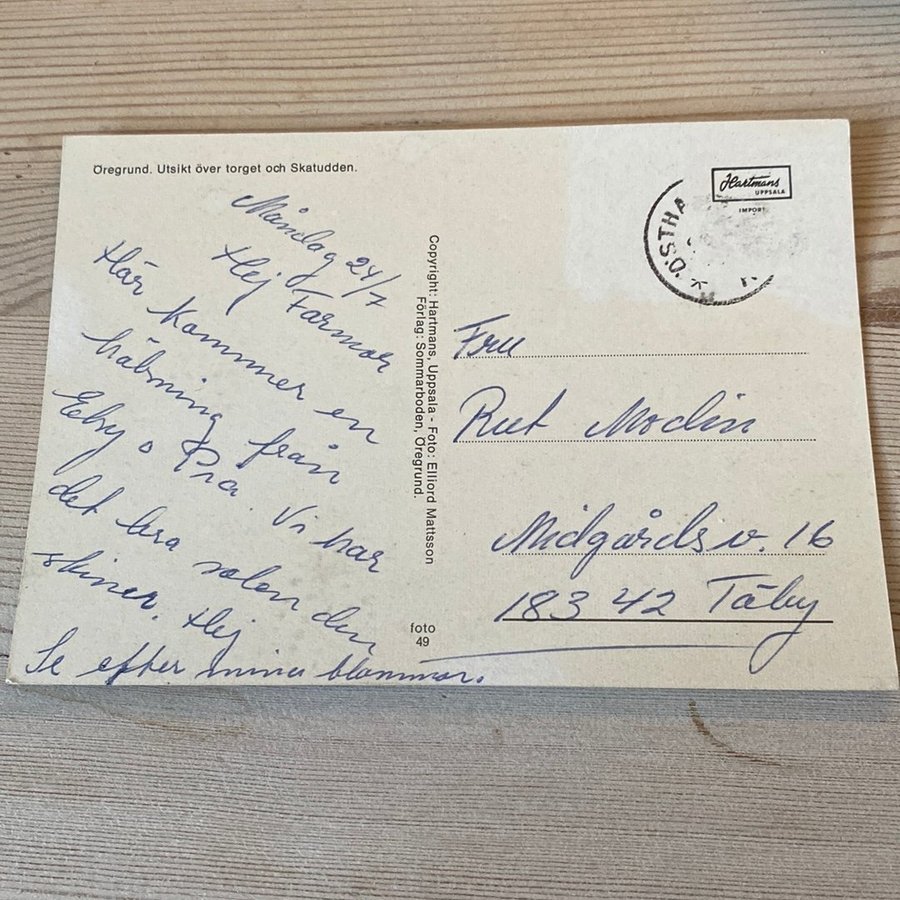 Öregrund. Utsikt över torget och Skatudden.
Måndag 24/7
Hej Farmor
Här kommer en
hälsning från
Eby o Pia Vi har
det bra solen den
skiner. Hej
Se efter mina blommor.
Copyright: Hartmans, Uppsala - Foto: Elliord Mattsson
Förlag: Sommarboden, Öregrund.
foto
49
Hartmans
UPPSALA
IMPORT
ÖSTHA
Fru
Rut Modin
Midgårdsv. 16
183 42 Täby